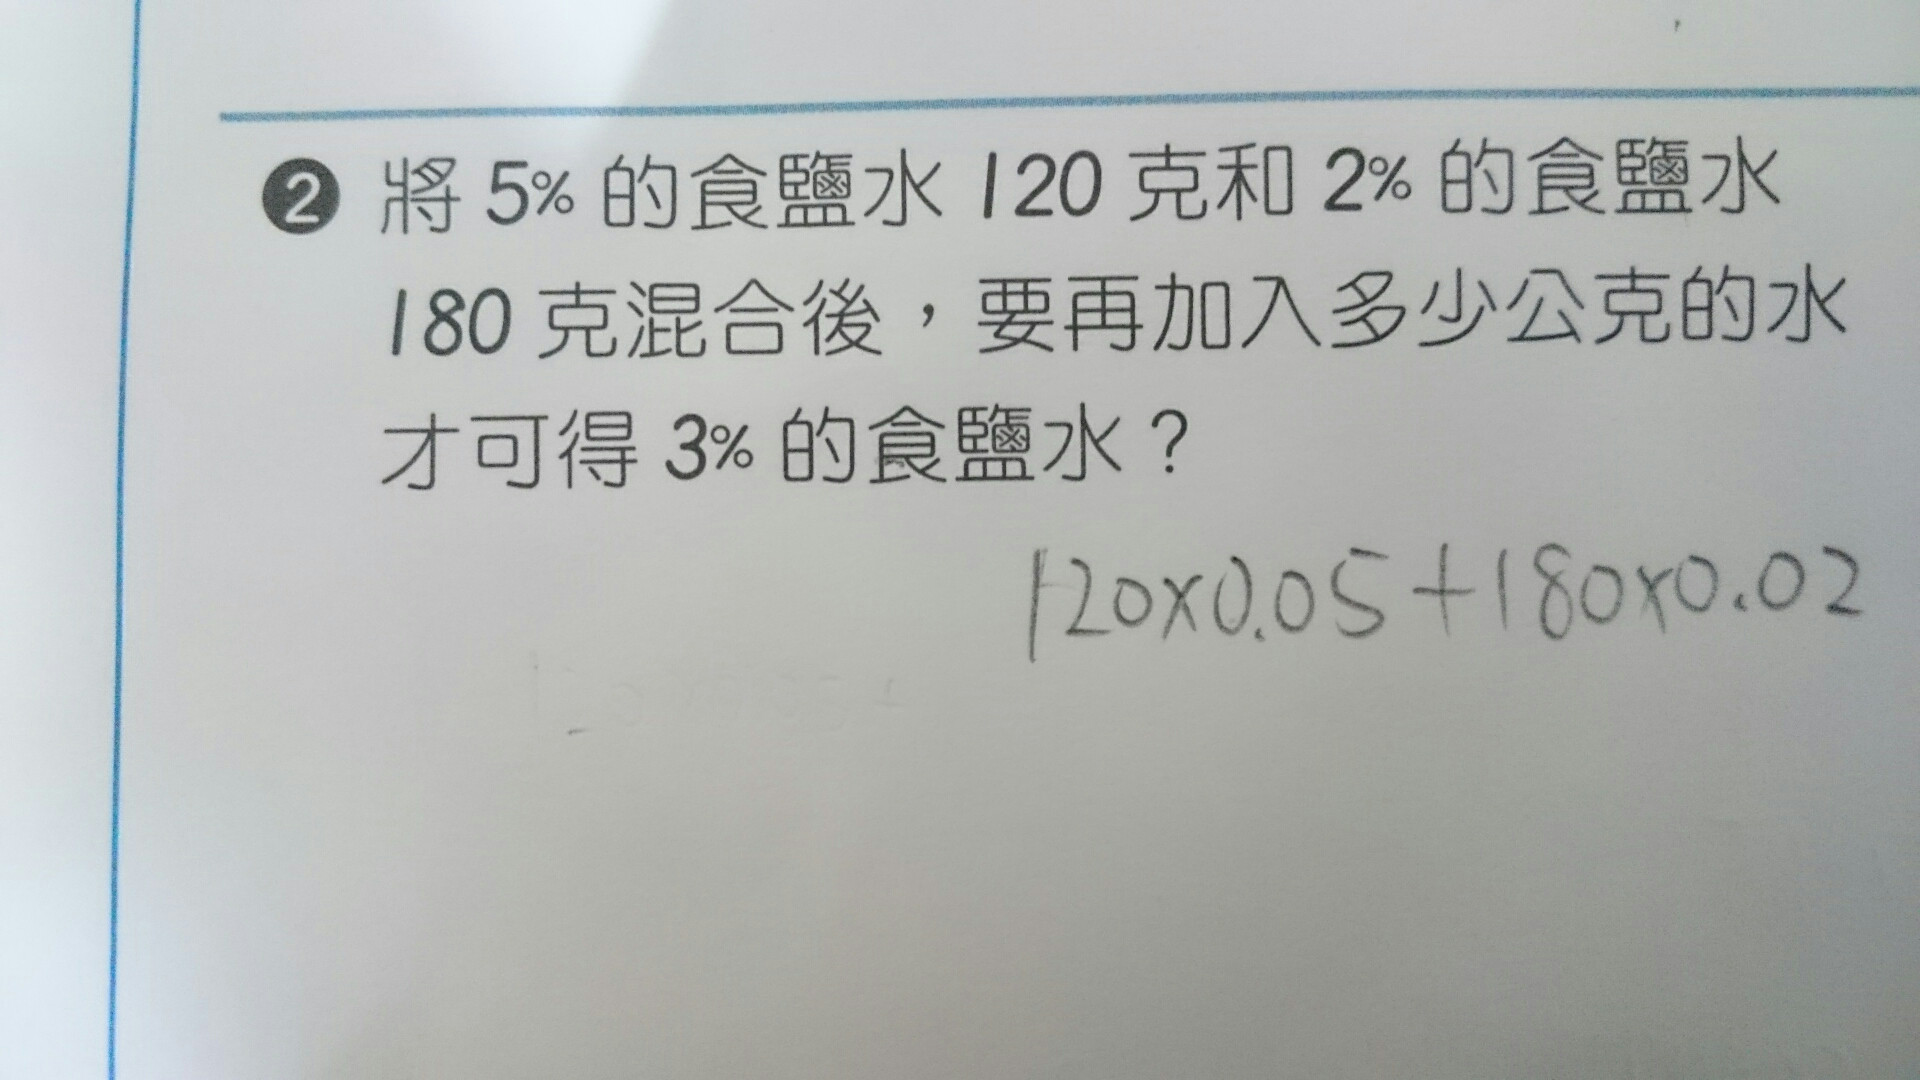 ❷ 將 5% 的食鹽水 120 克和 2% 的食鹽水
180 克混合後，要再加入多少公克的水
才可得 3% 的食鹽水？
120×0.05+180×0.02